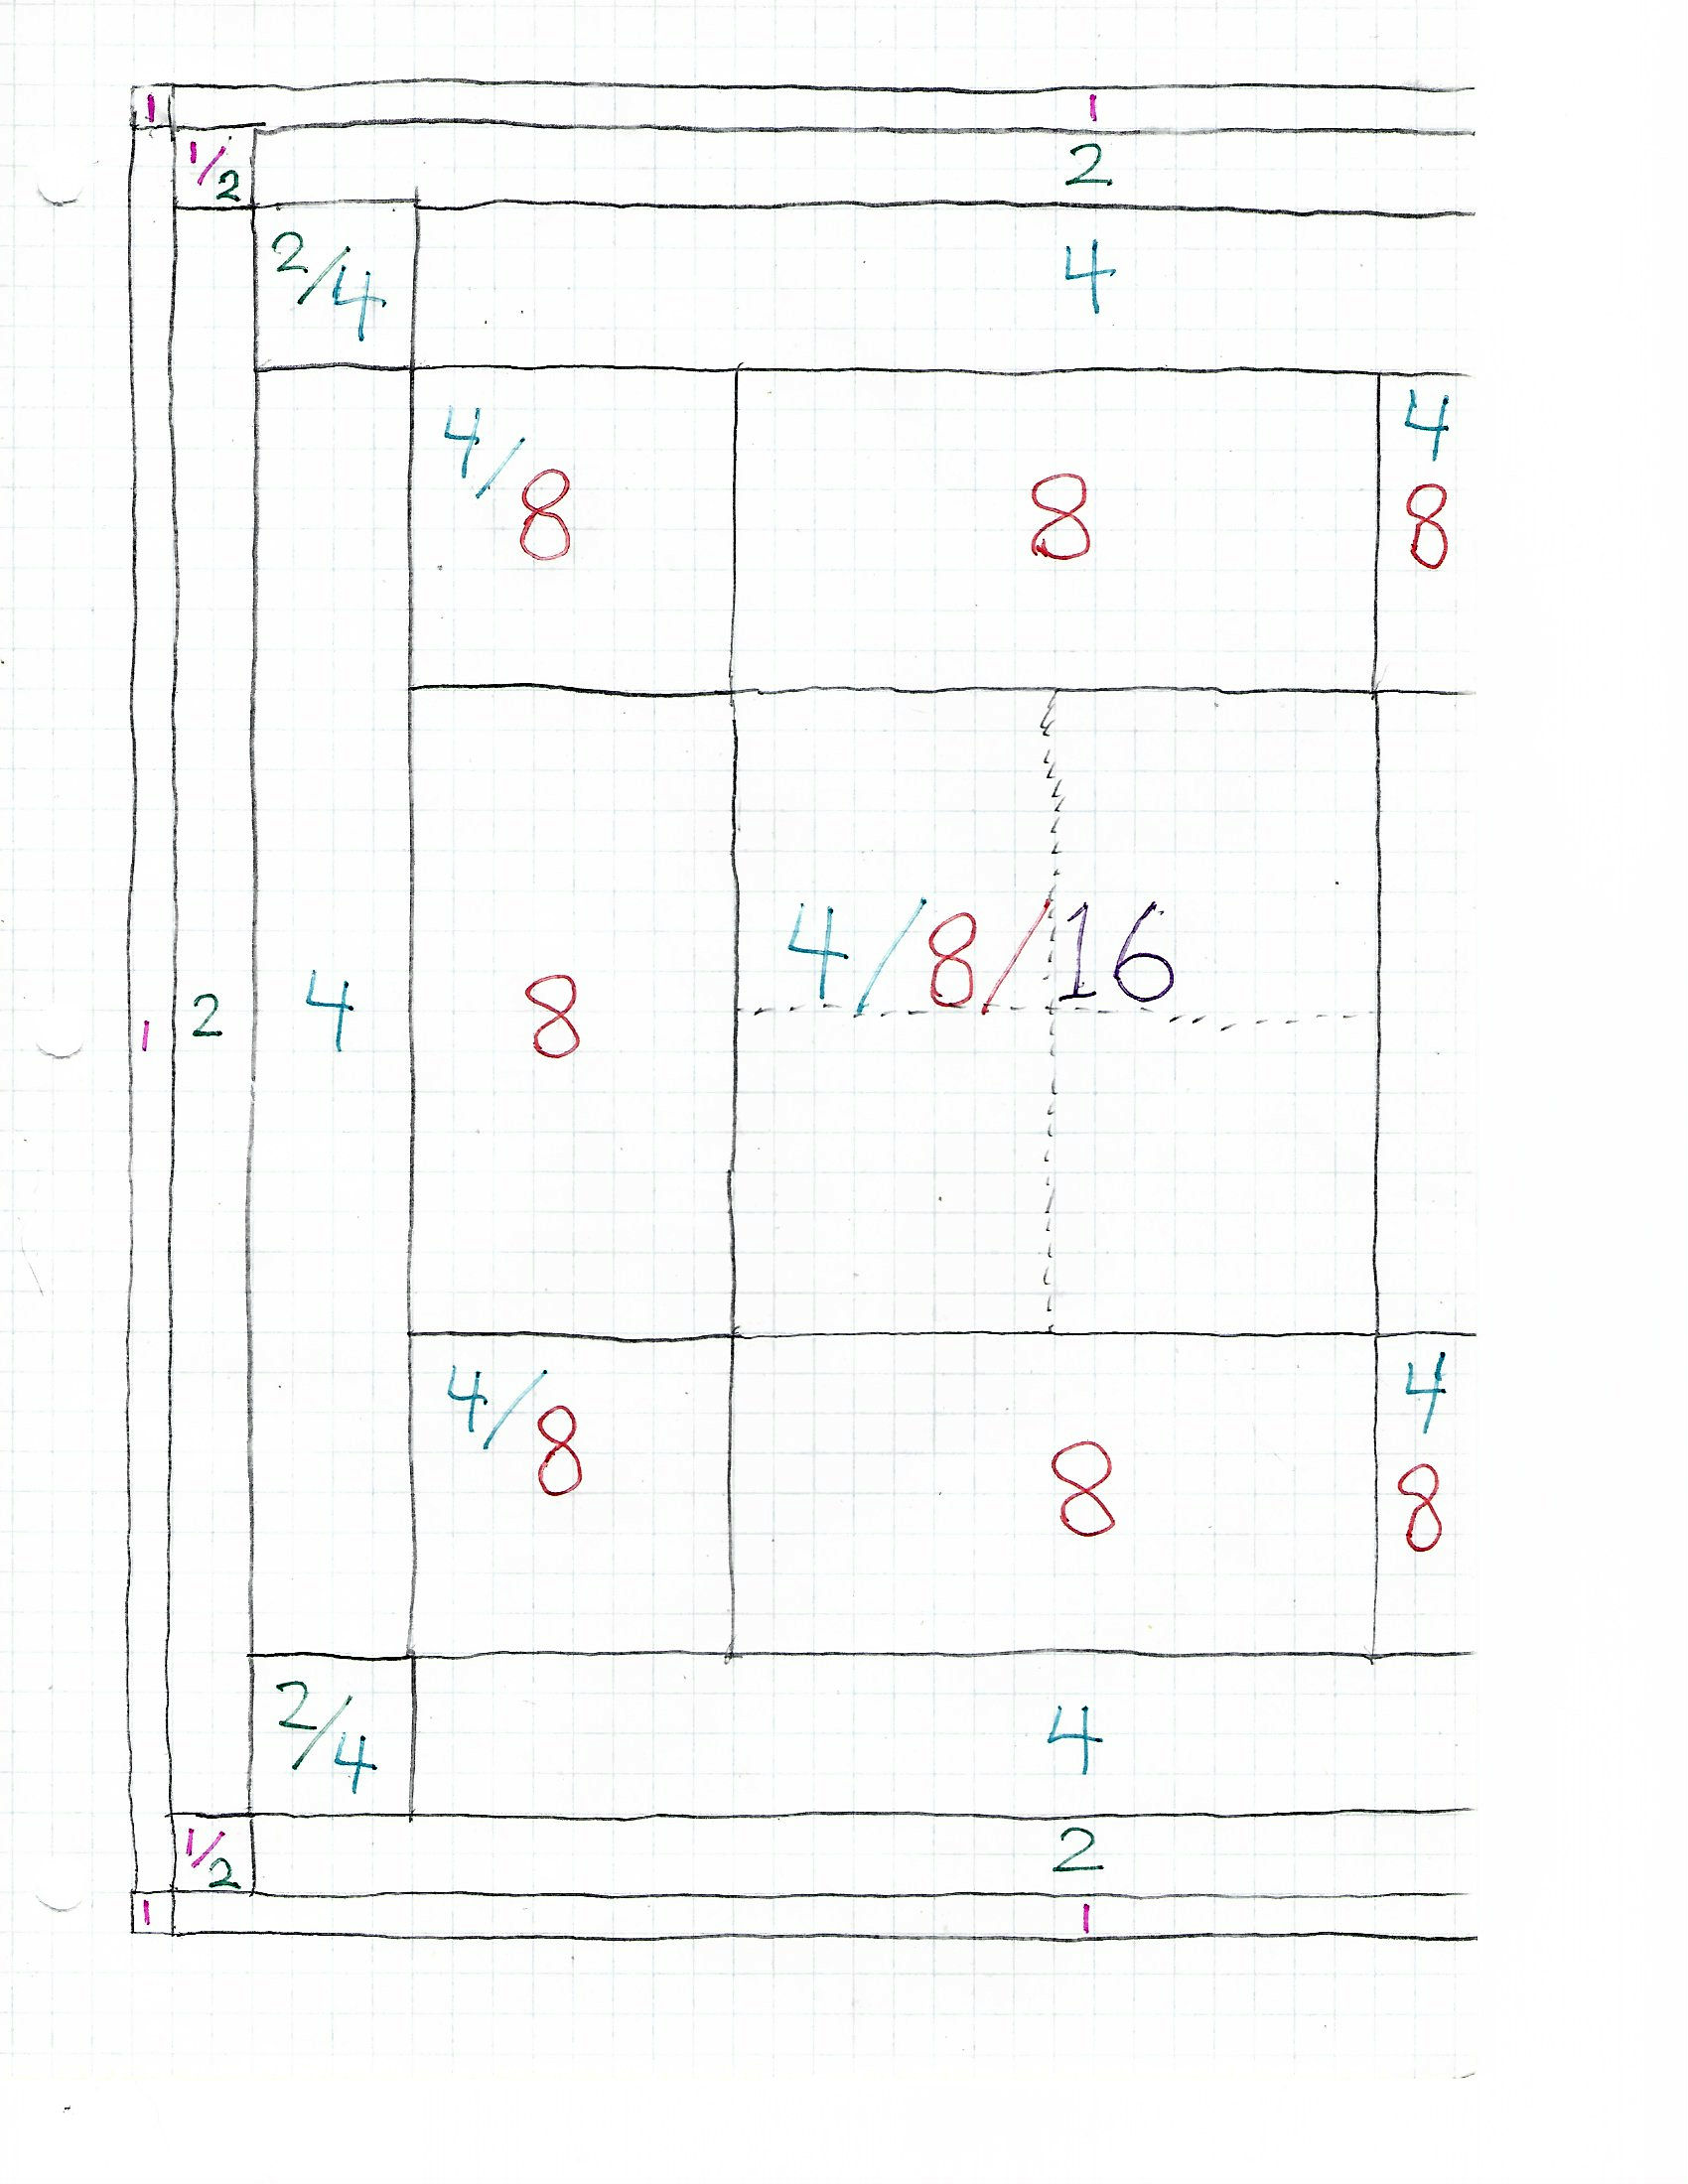 1 1
1/2 2
2/4 4
4/8 8 4
8
1 2 4 8 4/8/16
4/8 8 4
8
2/4 4
1/2 2
1 1